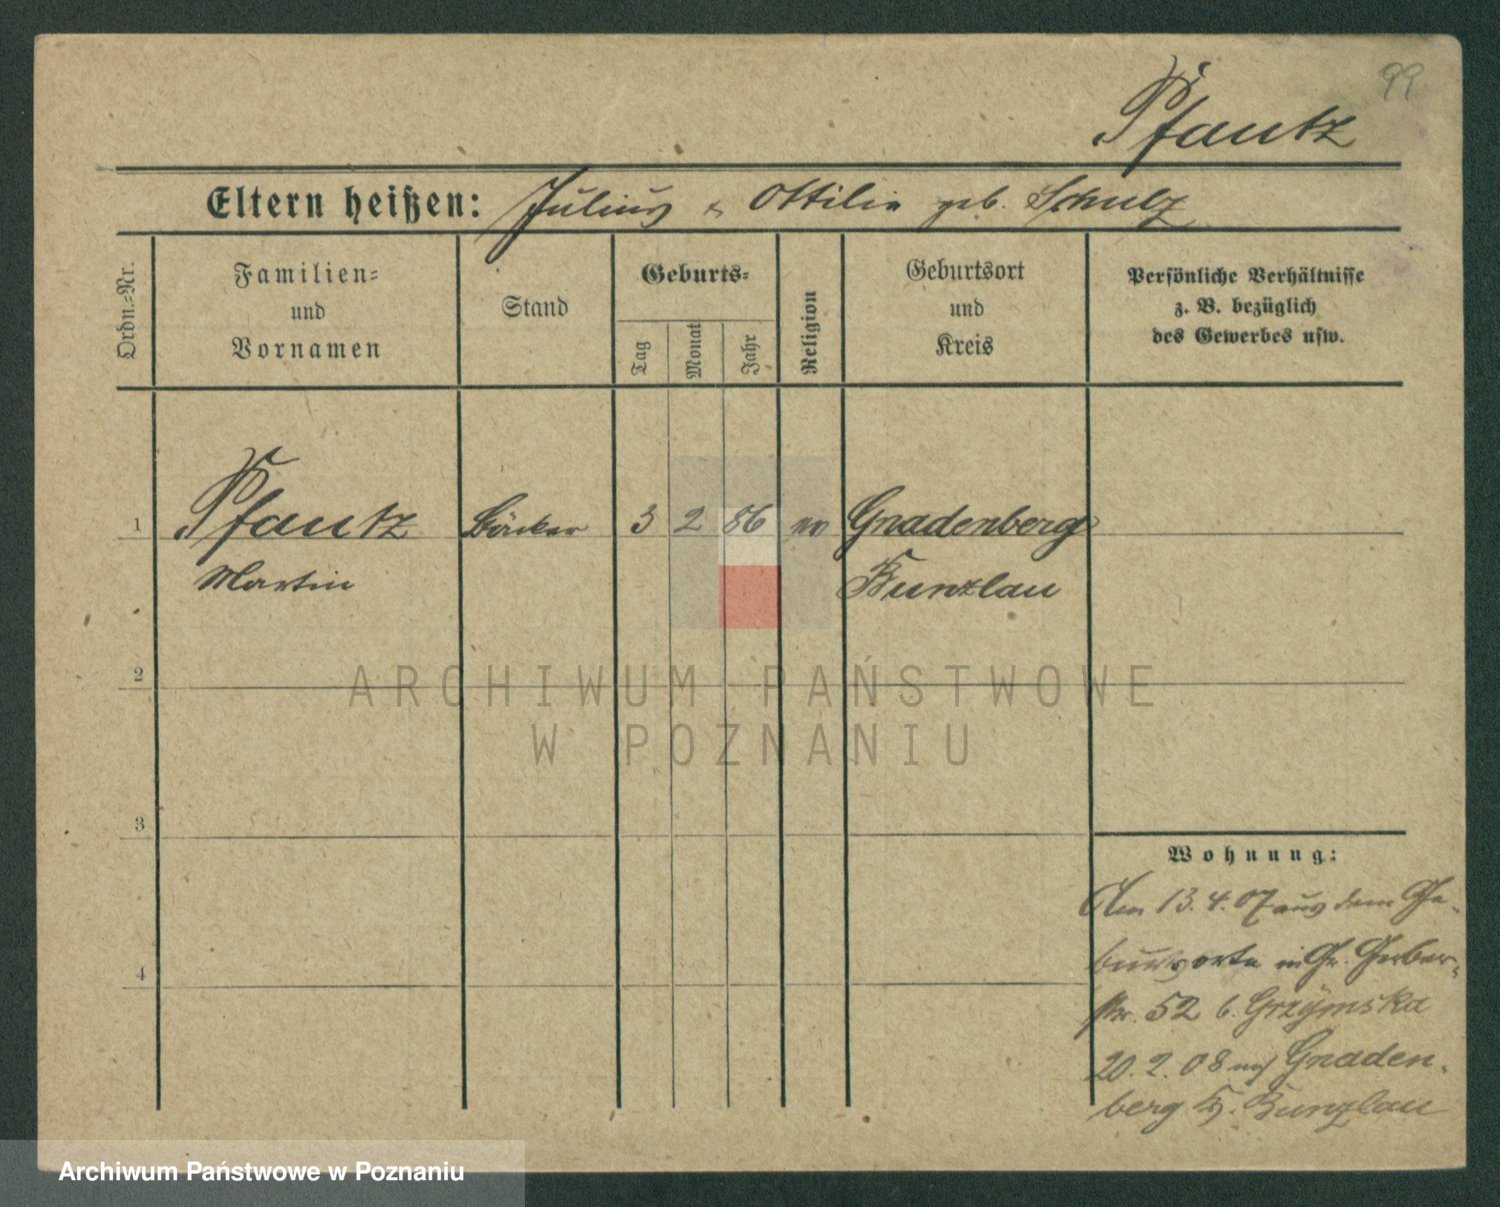 99
Pfautz
Eltern heißen: Julius & Ottilie geb. Schulz
Ordn.-Nr.
Familien-
und
Vornamen
Stand
Geburts-
Tag
Monat
Jahr
Religion
Geburtsort
und
Kreis
Persönliche Verhältnisse
z. B. bezüglich
des Gewerbes usw.
1 Pfautz Bäcker 3 2 86 ev Gnadenberg
Martin Bunzlau
2
ARCHIWUM PAŃSTWOWE
W POZNANIU
3
Wohnung:
Am 13.4.07 aus dem Ge-
burtsorte in Gr. Gerber-
str. 52 b. Grzymska
4
20.2.08 nch Gnaden-
berg Kr. Bunzlau
Archiwum Państwowe w Poznaniu